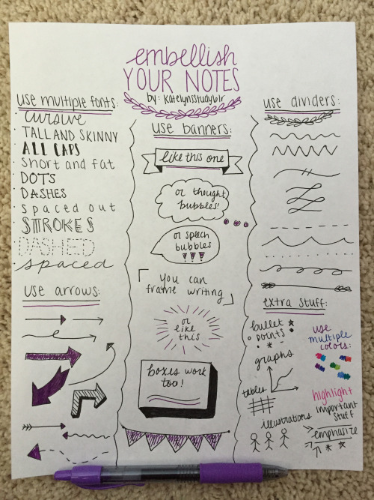 embellish
YOUR NOTES
by: katelynsstudyblr
use multiple fonts
· cursive
· TALL AND SKINNY
· ALL CAPS
· short and fat
· DOTS
· DASHES
· spaced out
STROKES
DASHED
spaced
use arrows:
use banners:
like this one
or thought
bubbles
or speech
bubbles
you can
frame writing
or
like
this
boxes work
too!
use dividers:
extra stuff:
bullet
points
graphs
tables
illustrations
use
multiple
colors:
highlight
important
stuff
emphasize